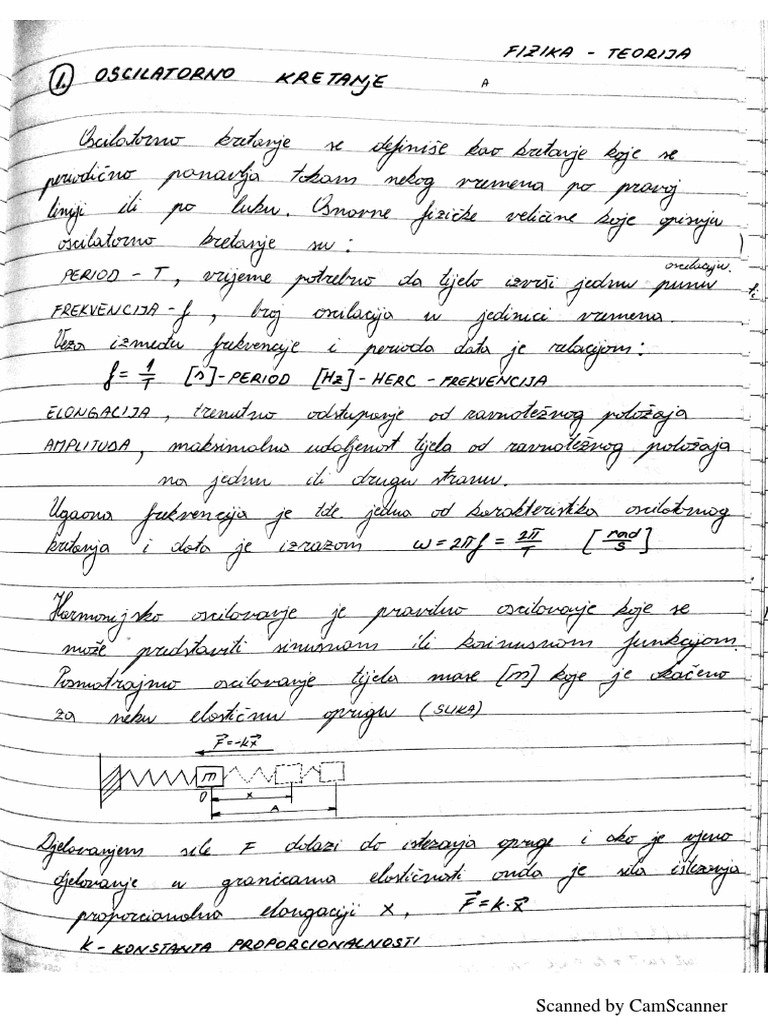 FIZIKA - TEORIJA
1. OSCILATORNO KRETANJE
A
Oscilatorno kretanje se definiše kao kretanje koje se
periodično ponavlja tokom nekog vremena po pravoj
liniji ili po luku. Osnovne fizičke veličine koje opisuju
oscilatorno kretanje su:
oscilaciju.
PERIOD - T, vrijeme potrebno da tijelo izvrši jednu punu
FREKVENCIJA - f, broj oscilacija u jedinici vremena.
Veza između frekvencije i perioda data je relacijom:
f = 1/T [s] - PERIOD [Hz] - HERC - FREKVENCIJA
ELONGACIJA, trenutno odstupanje od ravnotežnog položaja
AMPLITUDA, maksimalna udaljenost tijela od ravnotežnog položaja
na jednu ili drugu stranu.
Ugaona frekvencija je tđe. jedna od karakteristika oscilatornog
kretanja i data je izrazom ω = 2πf = 2π/T [rad/s]
Harmonijsko oscilovanje je pravilno oscilovanje koje se
može predstaviti sinusnom ili kosinusnom funkcijom.
Posmatrajmo oscilovanje tijela mase [m] koje je okačeno
za neku elastičnu oprugu (SLIKA)
F⃗ = -kx⃗
m
O x
A
Djelovanjem sile F dolazi do istezanja opruge i ako je njeno
djelovanje u granicama elastičnosti onda je sila istezanja
proporcionalna elongaciji x, F⃗ = k·x⃗
k - KONSTANTA PROPORCIONALNOSTI
Scanned by CamScanner